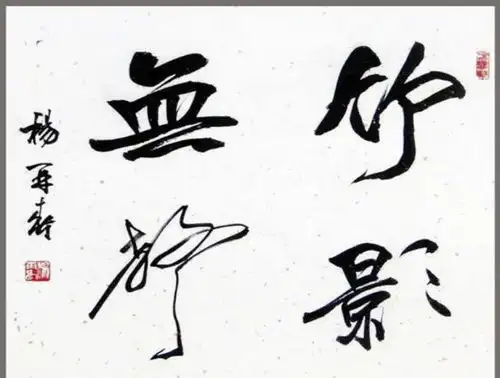 竹影
無聲
楊再春